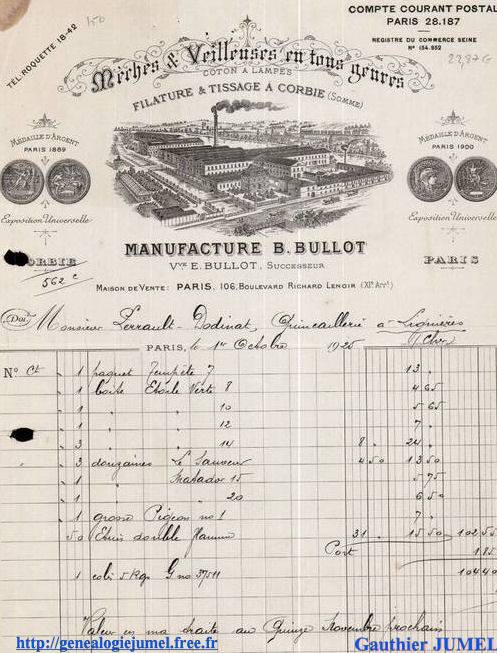 COMPTE COURANT POSTAL
PARIS 28.187
REGISTRE DU COMMERCE SEINE
N° 154.952
TÉL. ROQUETTE 18-42
150
Mèches & Veilleuses en tous genres
COTON A LAMPES
FILATURE & TISSAGE A CORBIE (SOMME)
MÉDAILLE D'ARGENT
PARIS 1889
Exposition Universelle
MÉDAILLE D'ARGENT
PARIS 1900
Exposition Universelle
CORBIE
PARIS
562 c
MANUFACTURE B. BULLOT
Vve E. BULLOT, SUCCESSEUR
MAISON DE VENTE: PARIS, 106, BOULEVARD RICHARD LENOIR (XIe Arrt)
Doit Monsieur Perrault-Dodinat, Quincaillerie a Lignières
(Cher)
PARIS, le 1er Octobre 1925
N° Ct 1 paquet Tempête 7 13 "
1 boîte Etoile Verte 8 4 65
1 " " 10 5 65
1 " " 12 7 "
3 " " 14 8 " 24 "
3 douzaines Le Sauveur 4 50 13 50
1 " Matador 15 5 75
1 " " 20 6 50
1 grosse Pigeon no 1 7 "
50 Etuis double flamme 31 " 15 50 102 55
Port 1 85
1 colis 5 Kgs G no 37511 104 40
Valeur en ma traite au Quinze Novembre prochain
http://genealogiejumel.free.fr
Gauthier JUMEL